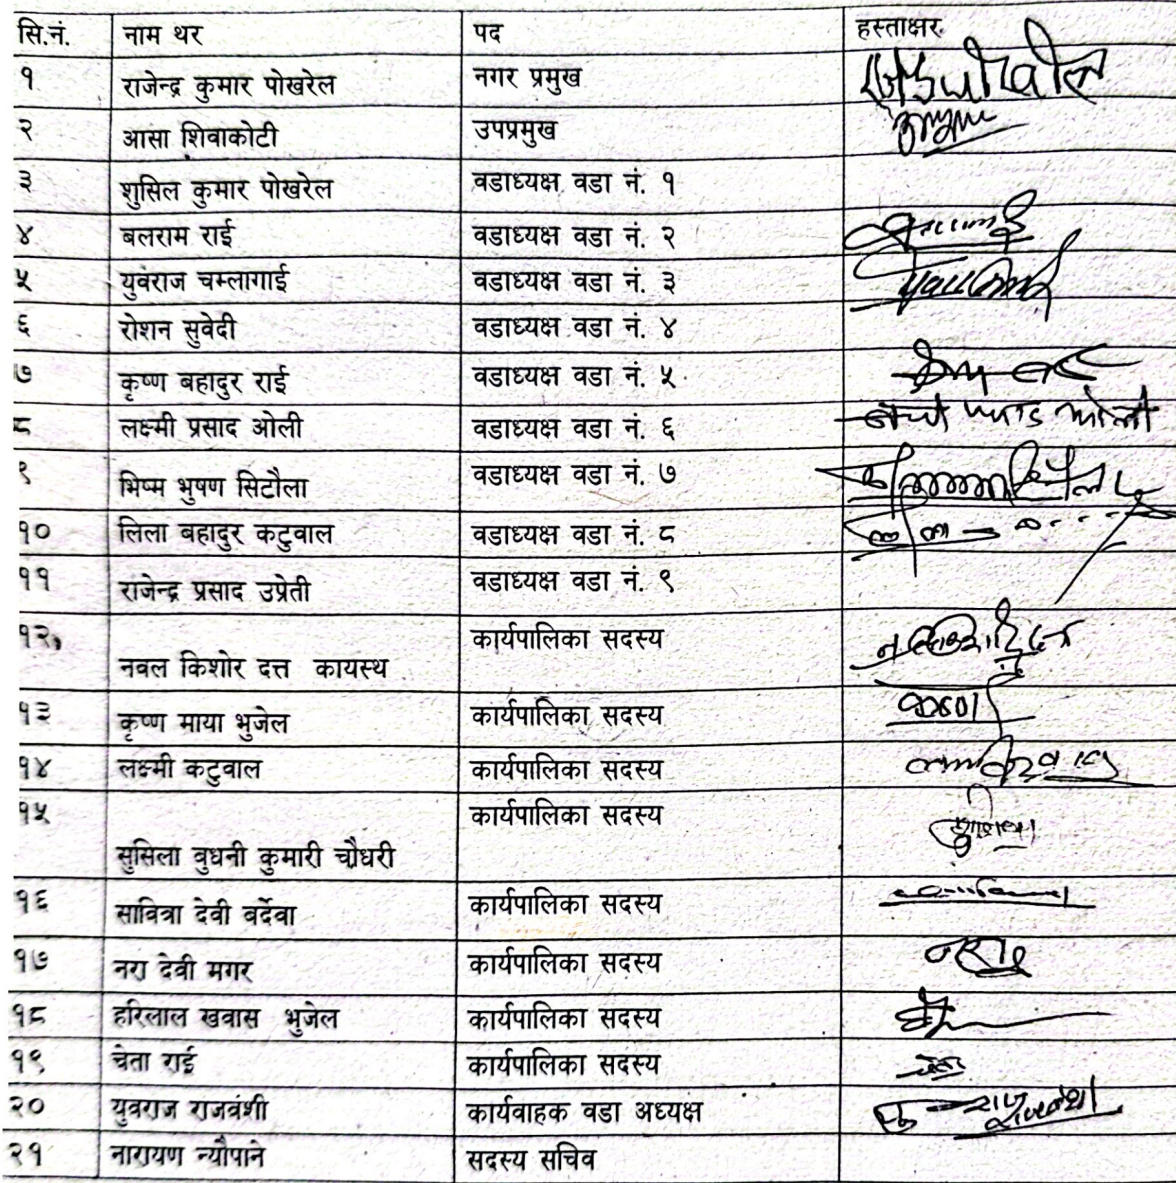 सि.नं. नाम थर पद हस्ताक्षर
१ राजेन्द्र कुमार पोखरेल नगर प्रमुख
२ आसा शिवाकोटी उपप्रमुख
३ शुसिल कुमार पोखरेल वडाध्यक्ष वडा नं. १
४ बलराम राई वडाध्यक्ष वडा नं. २
५ युवराज चम्लागाई वडाध्यक्ष वडा नं. ३
६ रोशन सुवेदी वडाध्यक्ष वडा नं. ४
७ कृष्ण बहादुर राई वडाध्यक्ष वडा नं. ५
८ लक्ष्मी प्रसाद ओली वडाध्यक्ष वडा नं. ६
९ भिष्म भुषण सिटौला वडाध्यक्ष वडा नं. ७
१० लिला बहादुर कटुवाल वडाध्यक्ष वडा नं. ८
११ राजेन्द्र प्रसाद उप्रेती वडाध्यक्ष वडा नं. ९
१२ नवल किशोर दत्त कायस्थ कार्यपालिका सदस्य
१३ कृष्ण माया भुजेल कार्यपालिका सदस्य
१४ लक्ष्मी कटुवाल कार्यपालिका सदस्य
१५ सुसिला वुधनी कुमारी चौधरी कार्यपालिका सदस्य
१६ सावित्रा देवी वर्देवा कार्यपालिका सदस्य
१७ नरा देवी मगर कार्यपालिका सदस्य
१८ हरिलाल खवास भुजेल कार्यपालिका सदस्य
१९ चेता राई कार्यपालिका सदस्य
२० युवराज राजवंशी कार्यवाहक वडा अध्यक्ष
२१ नारायण न्यौपाने सदस्य सचिव